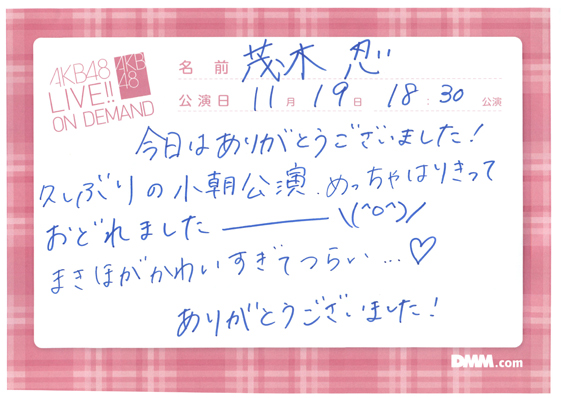 AKB48
LIVE!!
ON DEMAND
AKB
48
名前 茂木 忍
公演日 11月19日 18:30公演
今日はありがとうございました!
久しぶりの小朝公演、めっちゃはりきって
おどれました――― \(^o^)/
まきほがかわいすぎてつらい…♡
ありがとうございました!
DMM.com